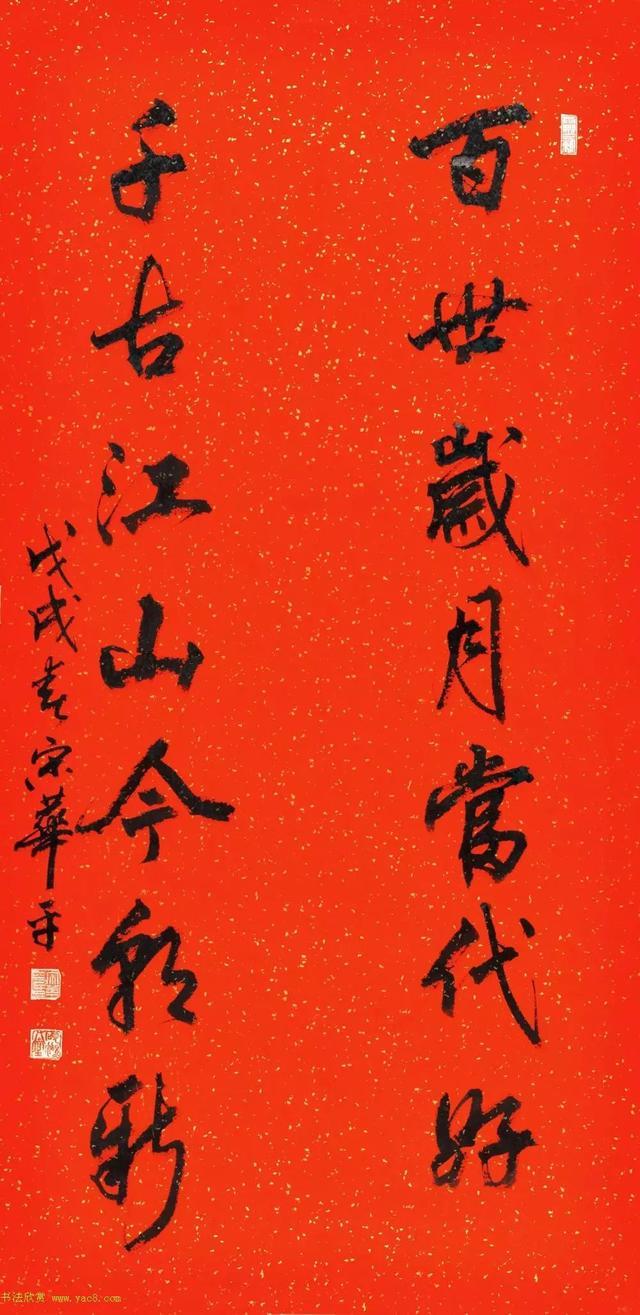 百世歲月當代好
千古江山今朝新
戊戌春宋華平
书法欣赏 www.yac8.com